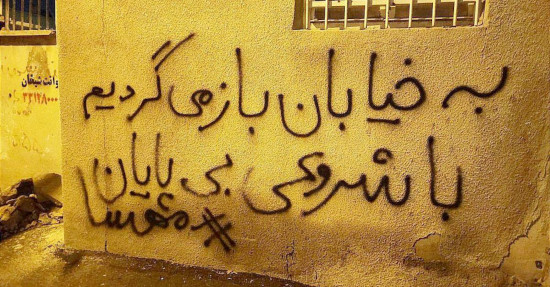 به خیابان باز می گردیم
با شروعی بی پایان
#مهسا
وانت شیفان